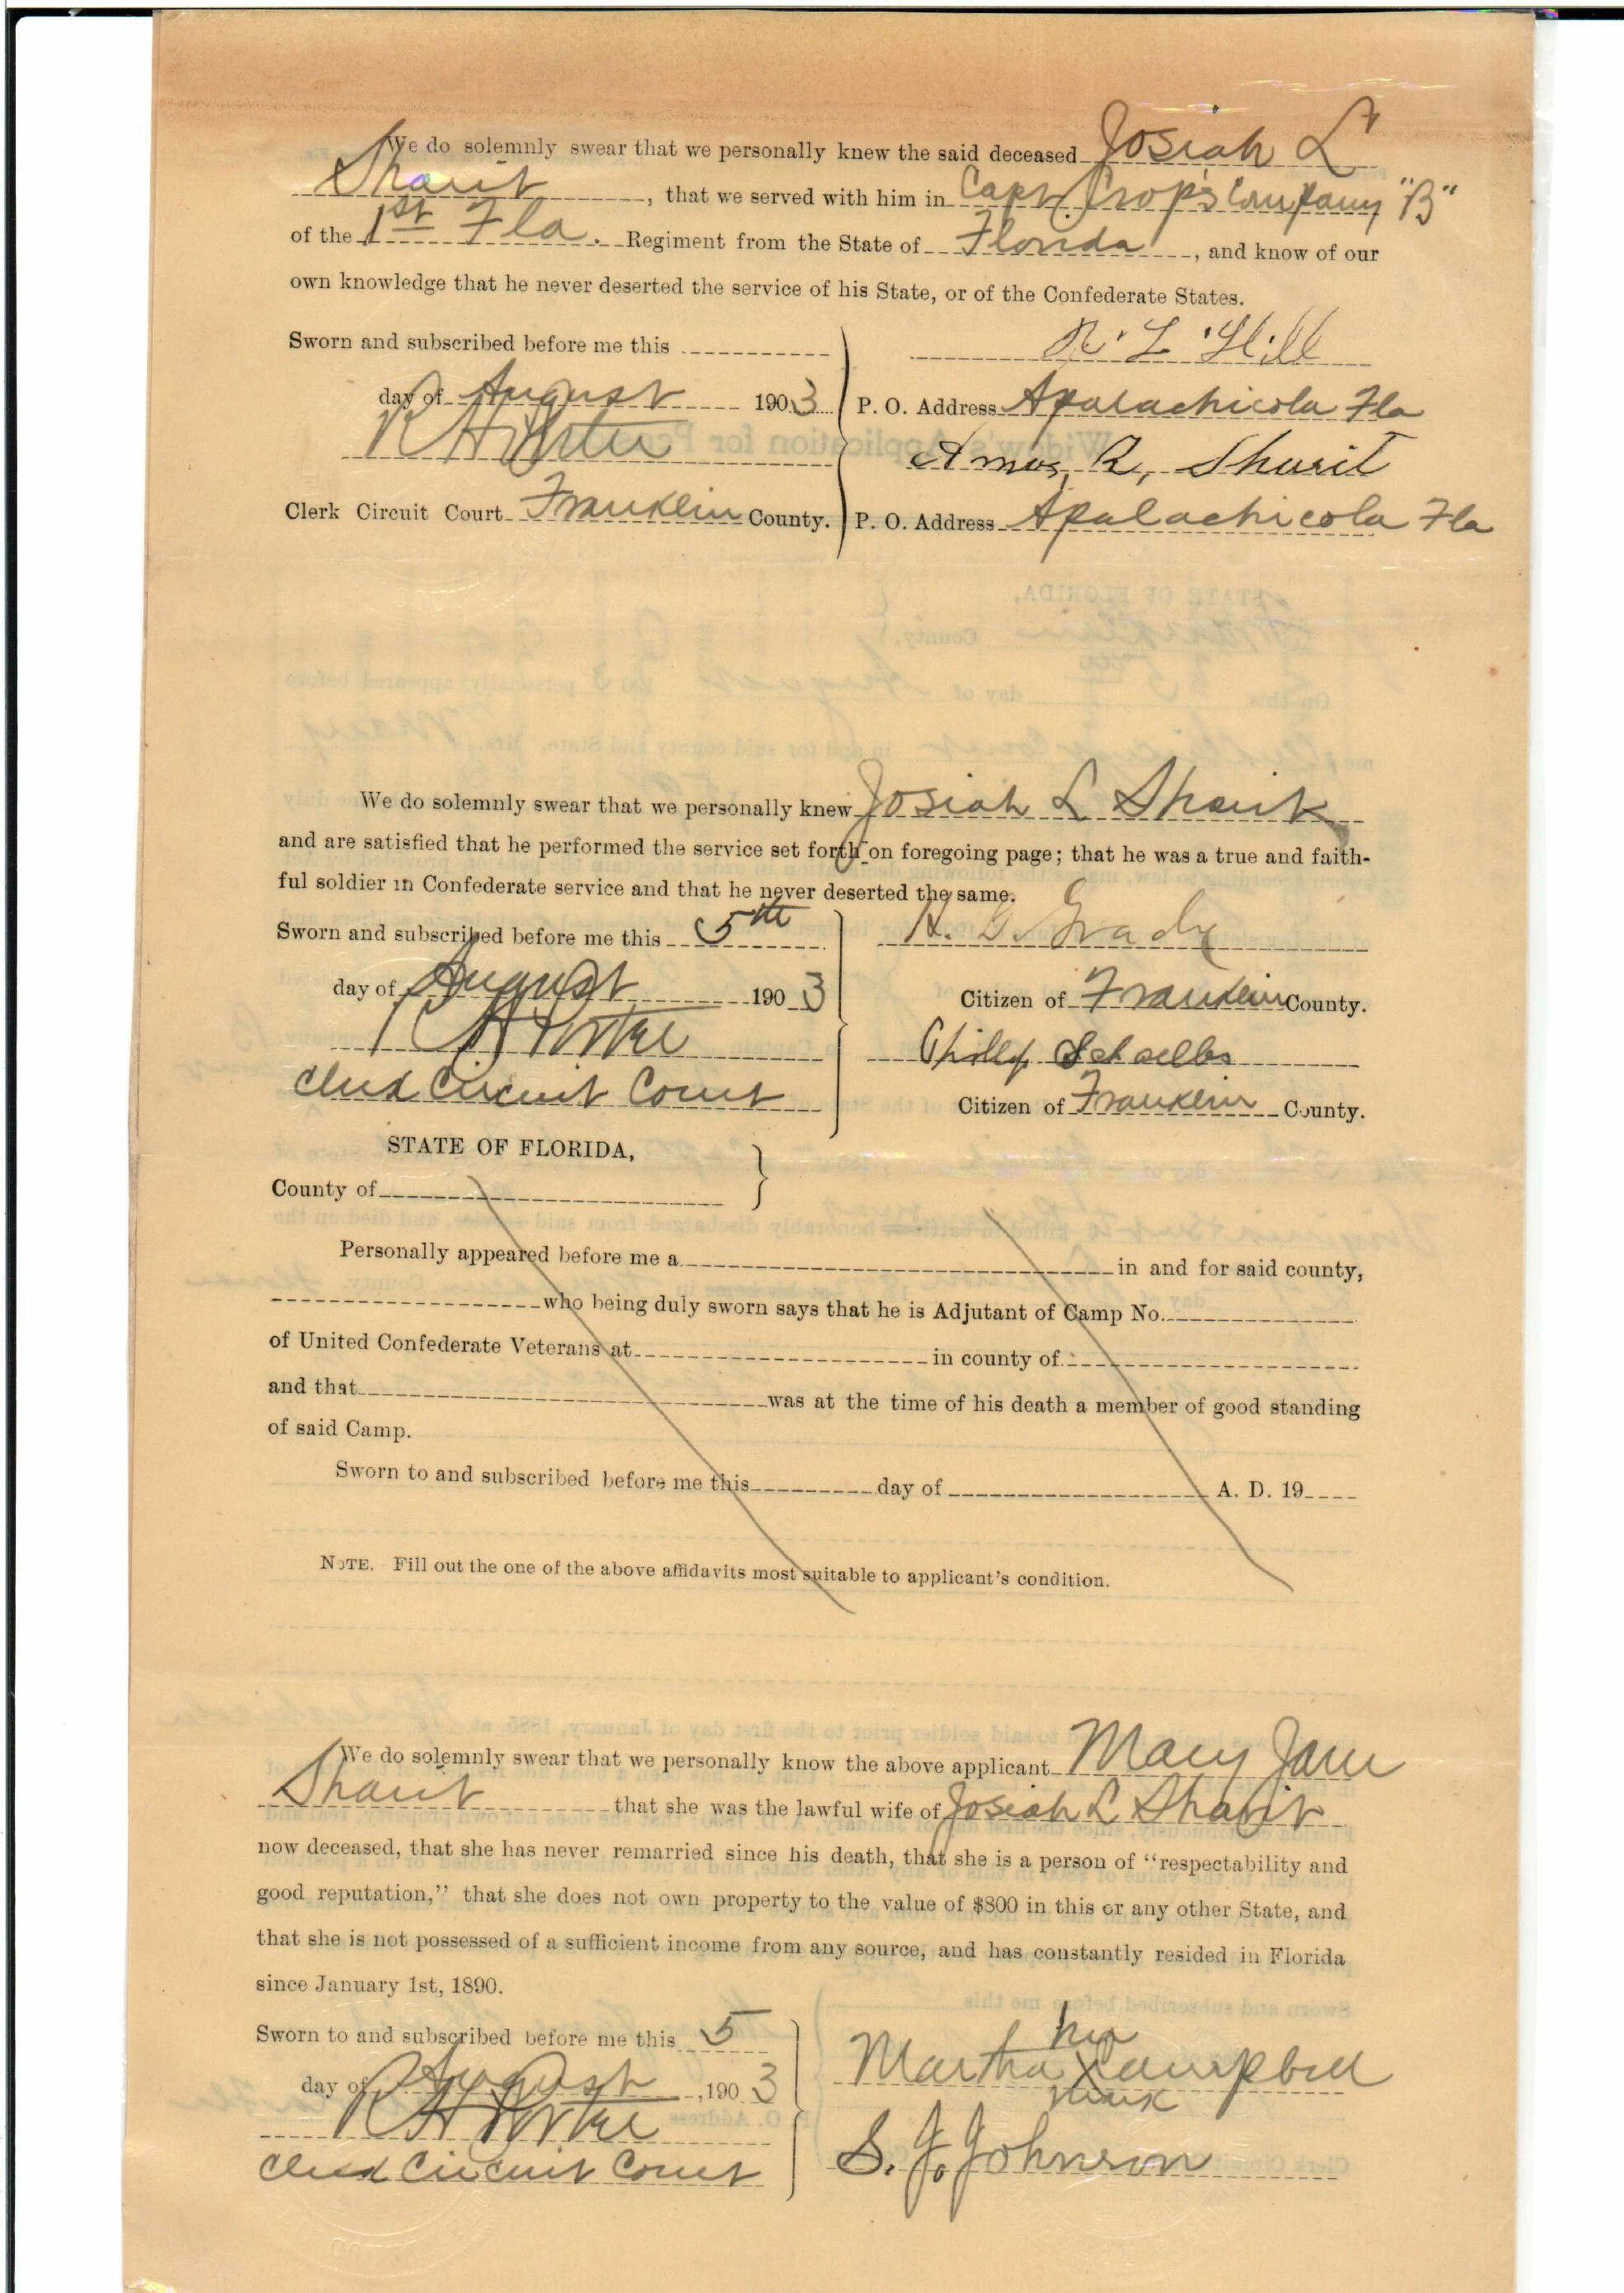 We do solemnly swear that we personally knew the said deceased Josiah L
Sharit, that we served with him in Capt. Crop's Company "B"
of the 1st Fla. Regiment from the State of Florida, and know of our
own knowledge that he never deserted the service of his State, or of the Confederate States.
Sworn and subscribed before me this
day of August 1903
R H Porter
Clerk Circuit Court Franklin County.
R. L. Hill
P. O. Address Apalachicola Fla
Amos R, Sharit
P. O. Address Apalachicola Fla
We do solemnly swear that we personally knew Josiah L Sharit
and are satisfied that he performed the service set forth on foregoing page; that he was a true and faith-
ful soldier in Confederate service and that he never deserted the same.
Sworn and subscribed before me this 5th
day of August 1903
R H Porter
Clerk Circuit Court
H. G. Grady
Citizen of Franklin County.
Philip
Citizen of Franklin County.
STATE OF FLORIDA,
County of
Personally appeared before me a in and for said county,
who being duly sworn says that he is Adjutant of Camp No.
of United Confederate Veterans at in county of
and that was at the time of his death a member of good standing
of said Camp.
Sworn to and subscribed before me this day of A. D. 19
NOTE. Fill out the one of the above affidavits most suitable to applicant's condition.
We do solemnly swear that we personally know the above applicant Mary Jane
Sharit that she was the lawful wife of Josiah L Sharit
now deceased, that she has never remarried since his death, that she is a person of "respectability and
good reputation," that she does not own property to the value of $800 in this or any other State, and
that she is not possessed of a sufficient income from any source, and has constantly resided in Florida
since January 1st, 1890.
Sworn to and subscribed before me this 5
day of August, 1903
R H Porter
Clerk Circuit Court
her
Martha X Campbell
mark
S. J. Johnson